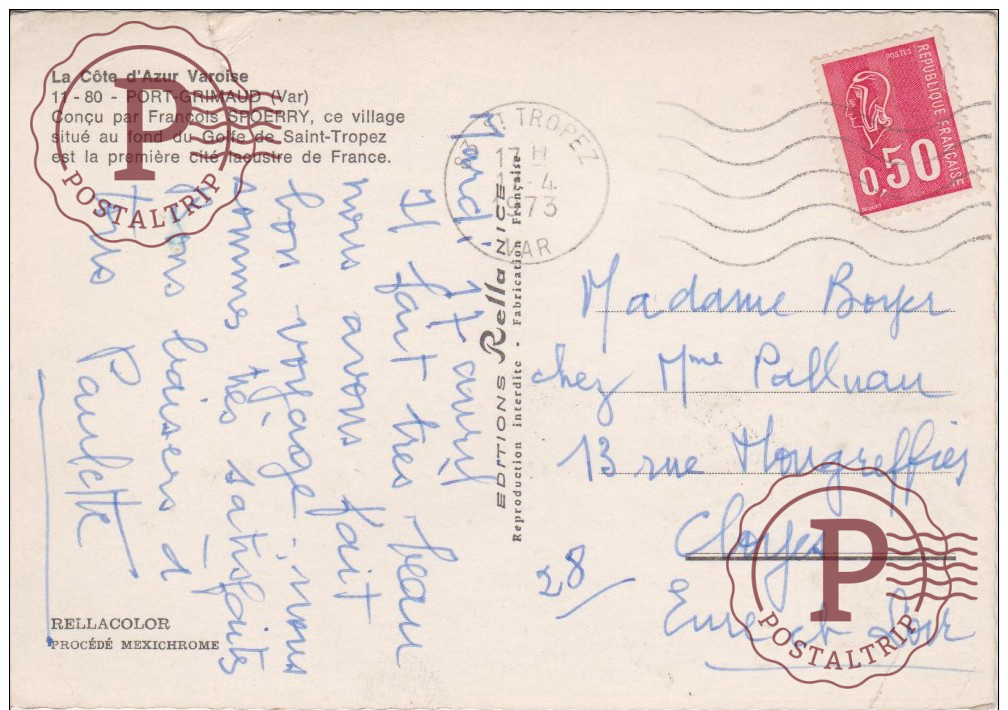 La Côte d'Azur Varoise
11 - 80 - PORT-GRIMAUD (Var)
Conçu par François SPOERRY, ce village
situé au fond du Golfe de Saint-Tropez
est la première cité lacustre de France.
POSTALTRIP
83 ST TROPEZ
17 H
4
1973
VAR
POSTES
REPUBLIQUE FRANÇAISE
0,50
Mardi 17 avril
Il fait très beau
nous avons fait
bon voyage. nous
sommes très satisfaits
bons baisers à
tous
Paulette
EDITIONS Rella NICE
Reproduction interdite - Fabrication Française
Madame Boyer
chez Mme Palluau
13 rue
Cloyes
28
Eure et Loir
POSTALTRIP
RELLACOLOR
PROCÉDÉ MEXICHROME